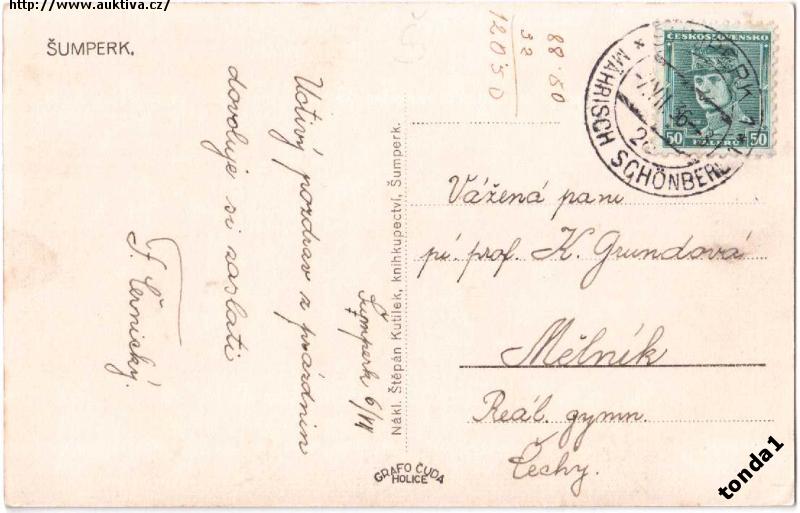 http://www.auktiva.cz/
ŠUMPERK.
88·50
32
120 50
Uctivý pozdrav z prázdnin
dovoluje si zaslati
F. Černický.
Šumperk 6/VII
Nákl. Štěpán Kutílek, knihkupectví, Šumperk.
GRAFO ČUDA
HOLICE
ČESKOSLOVENSKO
50 HALÉRŮ 50
ŠUMPERK 1
MÄHRISCH SCHÖNBERG 1
Vážená paní
pí. prof. K. Grundová
Mělník
Reál. gymn.
Čechy.
tonda1